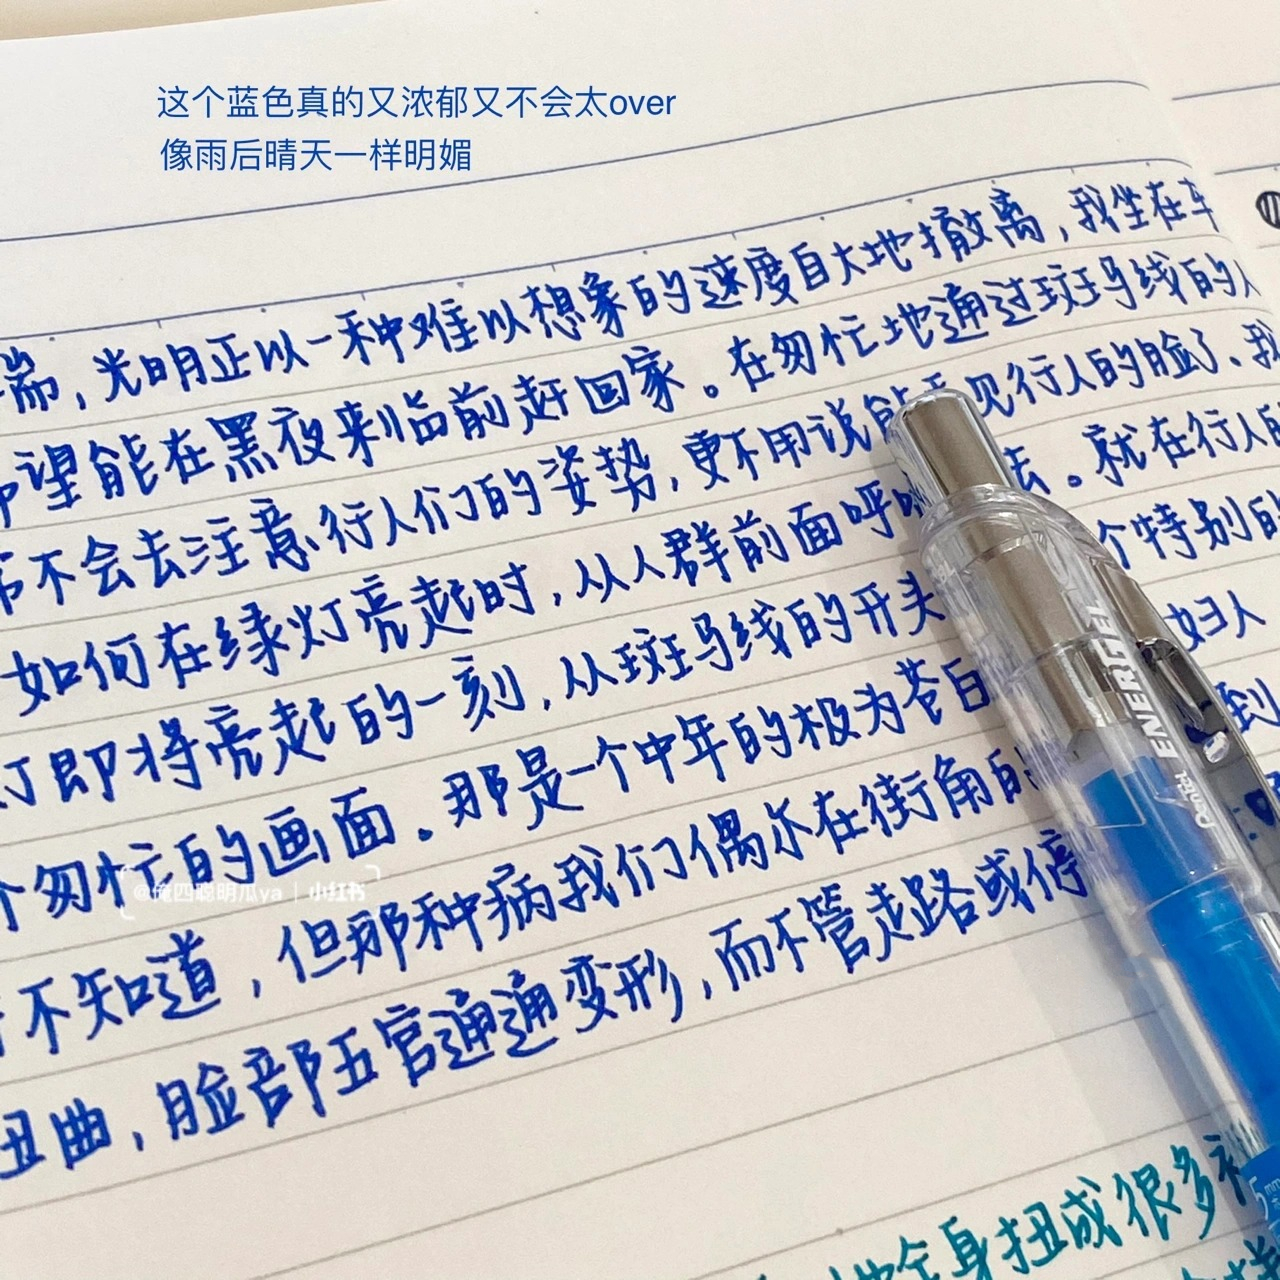 这个蓝色真的又浓郁又不会太over
像雨后晴天一样明媚
，光明正以一种难以想象的速度自大地撤离，我坐在车
望能在黑夜来临前赶回家。在匆忙地通过斑马线的人
不会去注意行人们的姿势，更不用说能看见行人的脸了、我
如何在绿灯亮起时，从人群前面呼 去。就在行人的
灯即将亮起的一刻，从斑马线的开头 个特别的
个匆忙的画面。那是一个中年的极为苍白 妇人
不知道，但那种病我们偶尔在街角的 到
扭曲，脸部五官通通变形，而不管走路或停
@俺四聪明瓜ya | 小红书
地全身扭成很多
Pentel ENERGEL
5mm